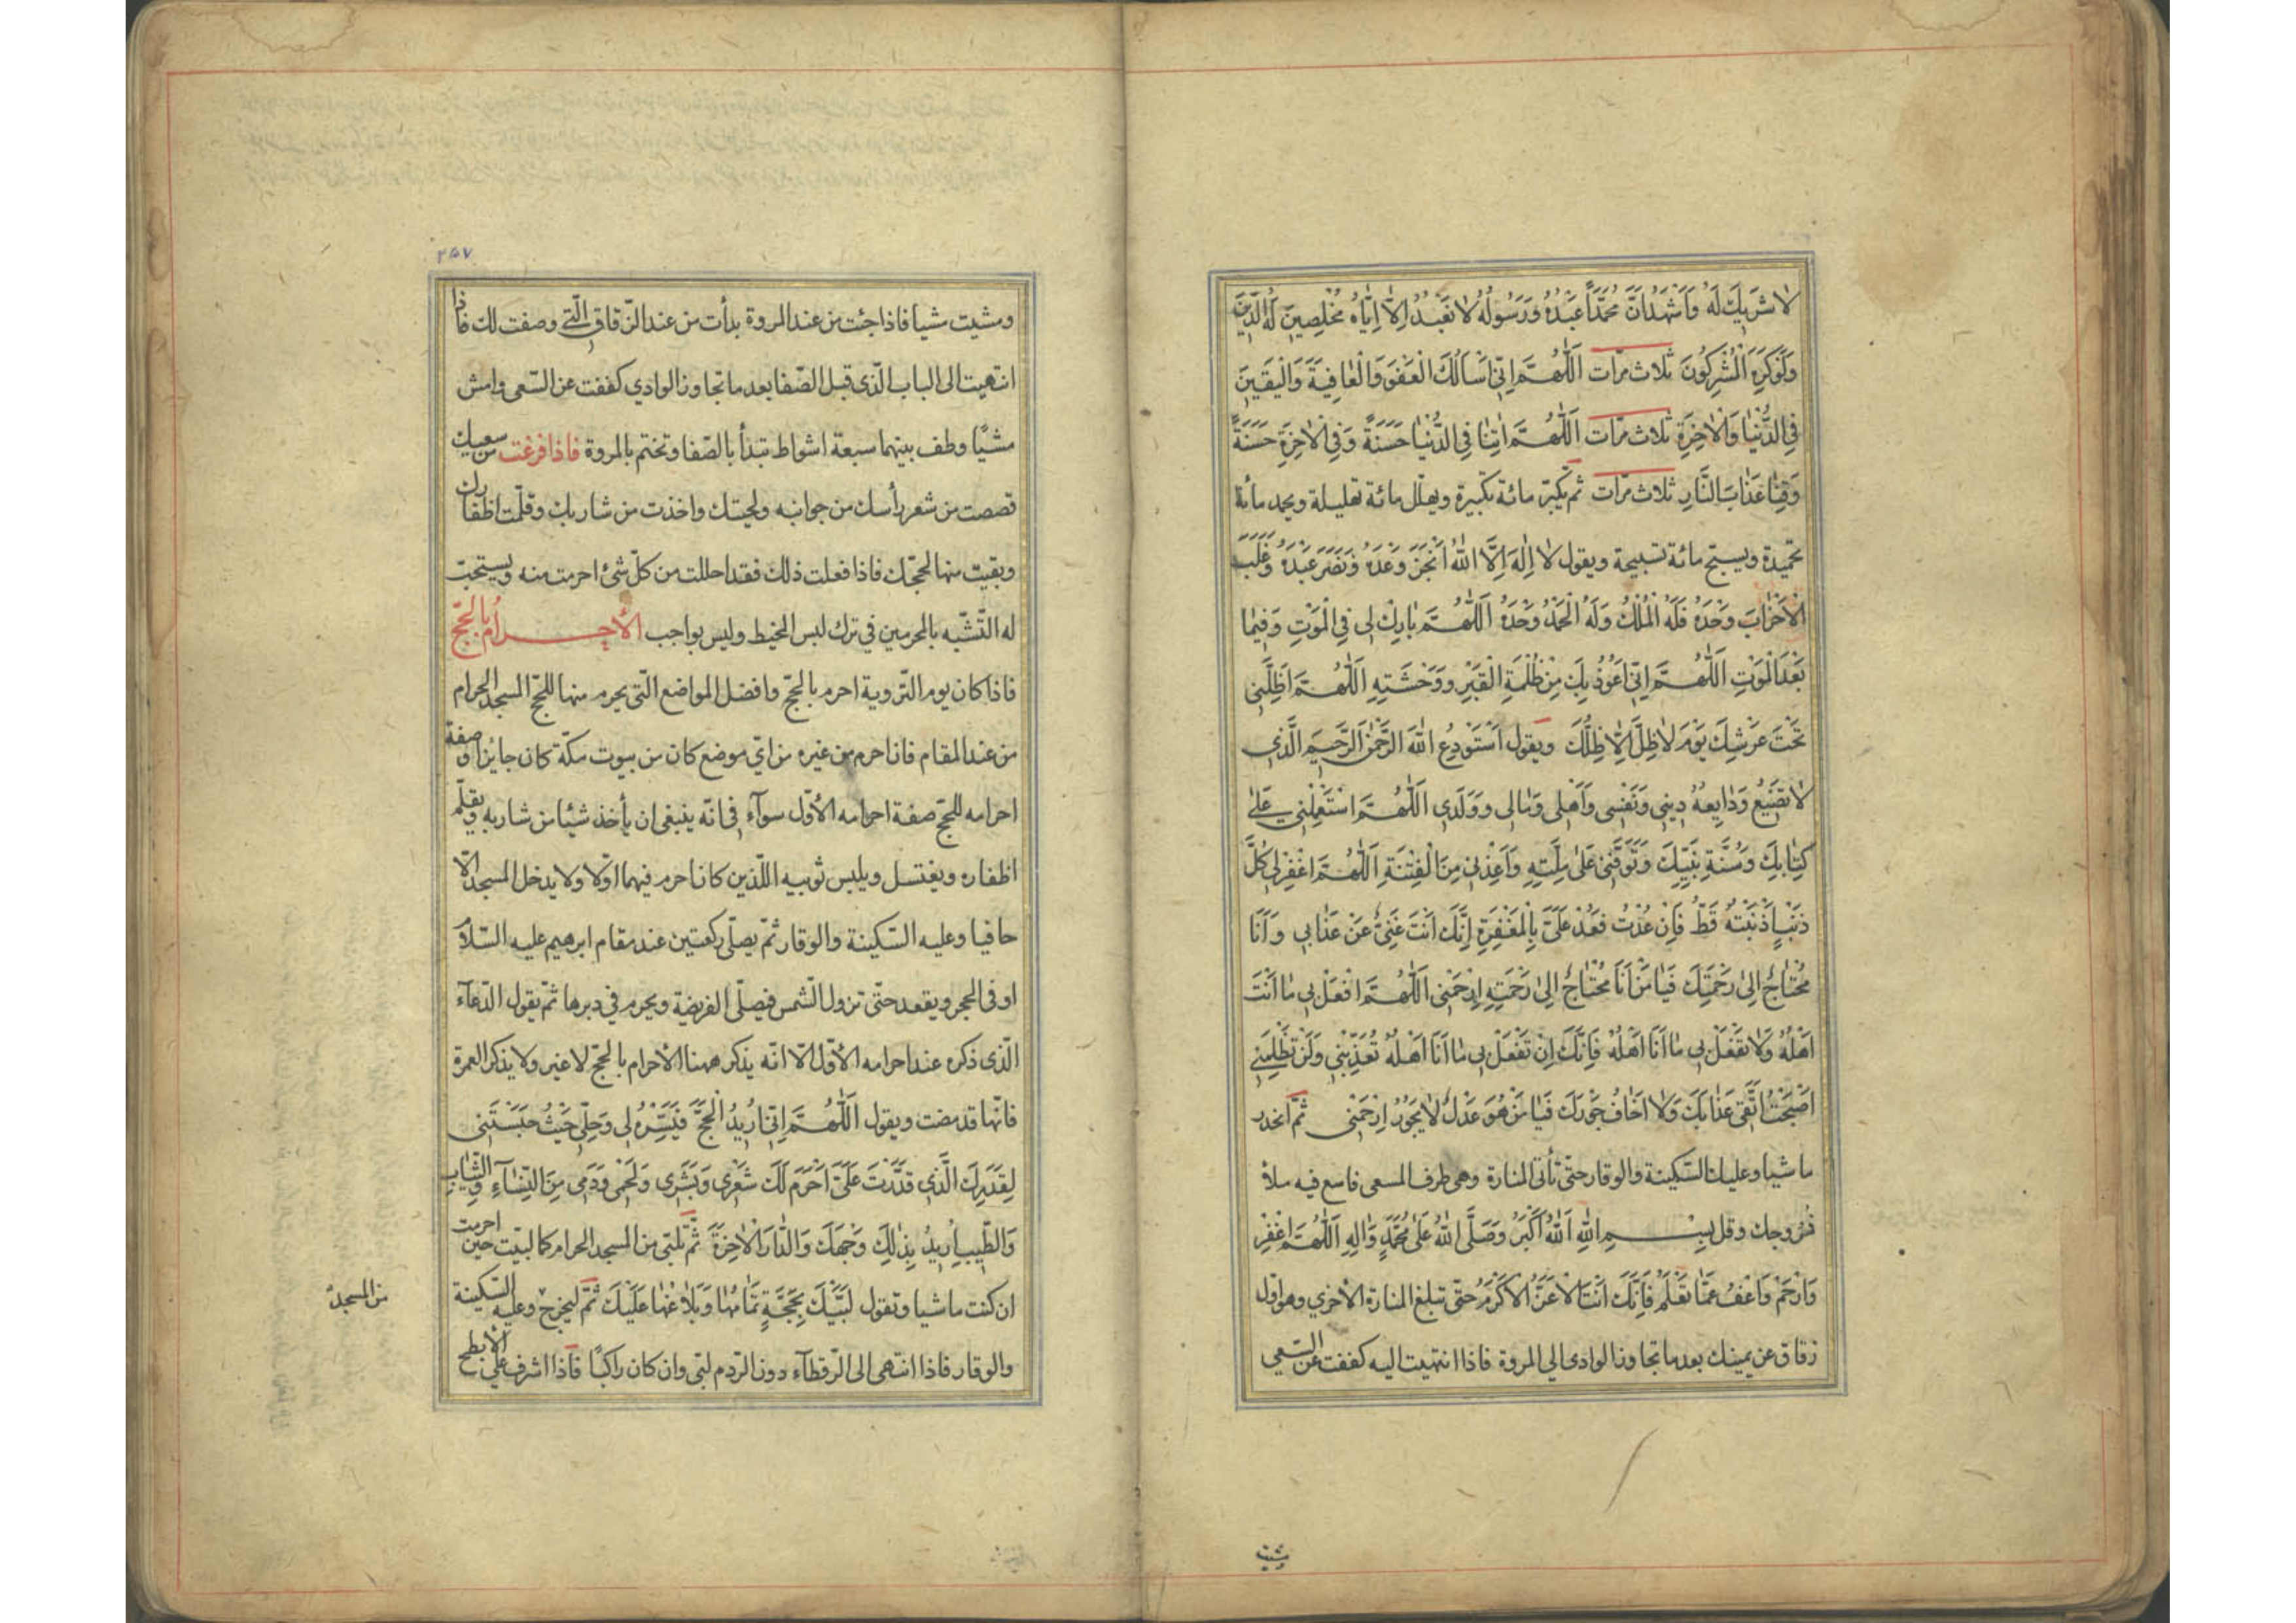 لا شَرِيكَ لَهُ وَاَشْهَدُ اَنَّ مُحَمَّدًا عَبْدُهُ وَرَسُولُهُ لا نَعْبُدُ اِلّا اِيّاهُ مُخْلِصِينَ لَهُ الدِّينَ
وَلَوْ كَرِهَ الْمُشْرِكُونَ ثلاث مرّات اَللّهُمَّ اِنِّي اَسْاَلُكَ الْعَفْوَ وَالْعافِيَةَ وَالْيَقِينَ
فِي الدُّنْيا وَالْاخِرَةِ ثلاث مرّات اَللّهُمَّ اتِنا فِي الدُّنْيا حَسَنَةً وَفِي الْاخِرَةِ حَسَنَةً
وَقِنا عَذابَ النَّارِ ثلاث مرّات ثم يكبّر مائة تكبيرة ويهلّل مائة تهليلة ويحمد مائة
تحميدة ويسبّح مائة تسبيحة ويقول لا اِلهَ اِلَّا اللهُ اَنْجَزَ وَعْدَهُ وَنَصَرَ عَبْدَهُ وَغَلَبَ
الْاَحْزابَ وَحْدَهُ فَلَهُ الْمُلْكُ وَلَهُ الْحَمْدُ وَحْدَهُ اَللّهُمَّ بارِكْ لِي فِي الْمَوْتِ وَفِيما
بَعْدَ الْمَوْتِ اَللّهُمَّ اِنِّي اَعُوذُ بِكَ مِنْ ظُلْمَةِ الْقَبْرِ وَوَحْشَتِهِ اَللّهُمَّ اَظِلَّنِي
تَحْتَ عَرْشِكَ يَوْمَ لا ظِلَّ اِلّا ظِلُّكَ ويقول اَسْتَوْدِعُ اللهَ الرَّحْمنَ الرَّحِيمَ الَّذِي
لا تَضِيعُ وَدايِعُهُ دِينِي وَنَفْسِي وَاَهْلِي وَمالِي وَوَلَدِي اَللّهُمَّ اسْتَعْمِلْنِي عَلى
كِتابِكَ وَسُنَّةِ نَبِيِّكَ وَتَوَفَّنِي عَلى مِلَّتِهِ وَاَعِذْنِي مِنَ الْفِتْنَةِ اَللّهُمَّ اغْفِرْ لِي كُلَّ
ذَنْبٍ اَذْنَبْتُهُ قَطُّ فَاِنْ عُدْتُ فَعُدْ عَلَيَّ بِالْمَغْفِرَةِ اِنَّكَ اَنْتَ غَنِيٌّ عَنْ عَذابِي وَاَنَا
مُحْتاجٌ اِلى رَحْمَتِكَ فَيا مَنْ اَنَا مُحْتاجٌ اِلى رَحْمَتِهِ اِرْحَمْنِي اَللّهُمَّ افْعَلْ بِي ما اَنْتَ
اَهْلُهُ وَلا تَفْعَلْ بِي ما اَنَا اَهْلُهُ فَاِنَّكَ اِنْ تَفْعَلْ بِي ما اَنَا اَهْلُهُ تُعَذِّبْنِي وَلَنْ تَظْلِمَنِي
اَصْبَحْتُ اَتَّقِي عَذابَكَ وَلا اَخافُ جَوْرَكَ فَيا مَنْ هُوَ عَدْلٌ لا يَجُورُ اِرْحَمْنِي ثمّ انحدر
ماشيا وعليك السّكينة والوقار حتّى تأتى المنارة وهى طرف المسعى فاسع فيه ملأ
فُرُوجك وقل بِسْمِ اللهِ اَللهُ اَكْبَرُ وَصَلَّى اللهُ عَلى مُحَمَّدٍ وَالِهِ اَللّهُمَّ اغْفِرْ
وَارْحَمْ وَاعْفُ عَمّا تَعْلَمُ فَاِنَّكَ اَنْتَ الْاَعَزُّ الْاَكْرَمُ حتّى تبلغ المنارة الأخرى وهو اوّل
زقاق عن يمينك بعد ما تجاوز الوادى الى المروة فاذا انتهيت اليه كففت عن السّعى
ومشيت
٢٥٧
ومشيت مشيا فاذا جئت من عند المروة بدأت من عند الزّقاق الّتى وصفت لك فاذا
انتهيت الى الباب الّذى قبل الصّفا بعد ما تجاوز الوادي كففت عن السّعى وامش
مشيًا وطف بينهما سبعة اشواط تبدأ بالصّفا وتختم بالمروة فاذا فرغت من سعيك
قصصت من شعر رأسك من جوانبه ولحيتك واخذت من شاربك وقلّمت اظفارك
وبقيت منها لحجّك فاذا فعلت ذلك فقد احللت من كلّ شئ احرمت منه ويستحبّ
له التّشبّه بالمحرمين في ترك لبس المخيط وليس بواجب الأحرام بالحجّ
فاذا كان يوم التّروية احرم بالحجّ وافضل المواضع الّتى يحرم منها للحجّ المسجد الحرام
من عند المقام فان احرم من غيره من اىّ موضع كان من بيوت مكّة كان جايزا وصفة
احرامه للحجّ صفة احرامه الأوّل سوآء فى انّه ينبغى ان يأخذ شيئا من شاربه ويقلّم
اظفاره ويغتسل ويلبس ثوبيه اللّذين كان احرم فيهما اوّلا ولا يدخل المسجد الّا
حافيا وعليه السّكينة والوقار ثمّ يصلّى ركعتين عند مقام ابرهيم عليه السّلام
او فى الحجر ويقعد حتّى تزول الشّمس فيصلّى الفريضة ويحرم في دبرها ثمّ يقول الدّعآء
الّذى ذكره عند احرامه الأوّل الّا انّه يذكر ههنا الأحرام بالحجّ لا غير ولا يذكر العمرة
فانّها قد مضت ويقول اَللّهُمَّ اِنِّي اُرِيدُ الْحَجَّ فَيَسِّرْهُ لِي وَحُلَّنِي حَيْثُ حَبَسْتَنِي
لِقَدَرِكَ الَّذِي قَدَّرْتَ عَلَيَّ اَحْرَمَ لَكَ شَعْرِي وَبَشَرِي وَلَحْمِي وَدَمِي مِنَ النِّسآءِ وَالثِّيابِ
وَالطِّيبِ اُرِيدُ بِذلِكَ وَجْهَكَ وَالدّارَ الْاخِرَةَ ثمّ تلبّى من المسجد الحرام كما لبّيت حين احرمت
ان كنت ماشيا وتقول لَبَّيْكَ بِحَجَّةٍ تَمامُها وَبَلاغُها عَلَيْكَ ثمّ ليخرج وعليه السّكينة
من المسجد
والوقار فاذا انتهى الى الرّقطآء دون الرّدم لبّى وان كان راكبًا فاذا اشرف على الأبطح